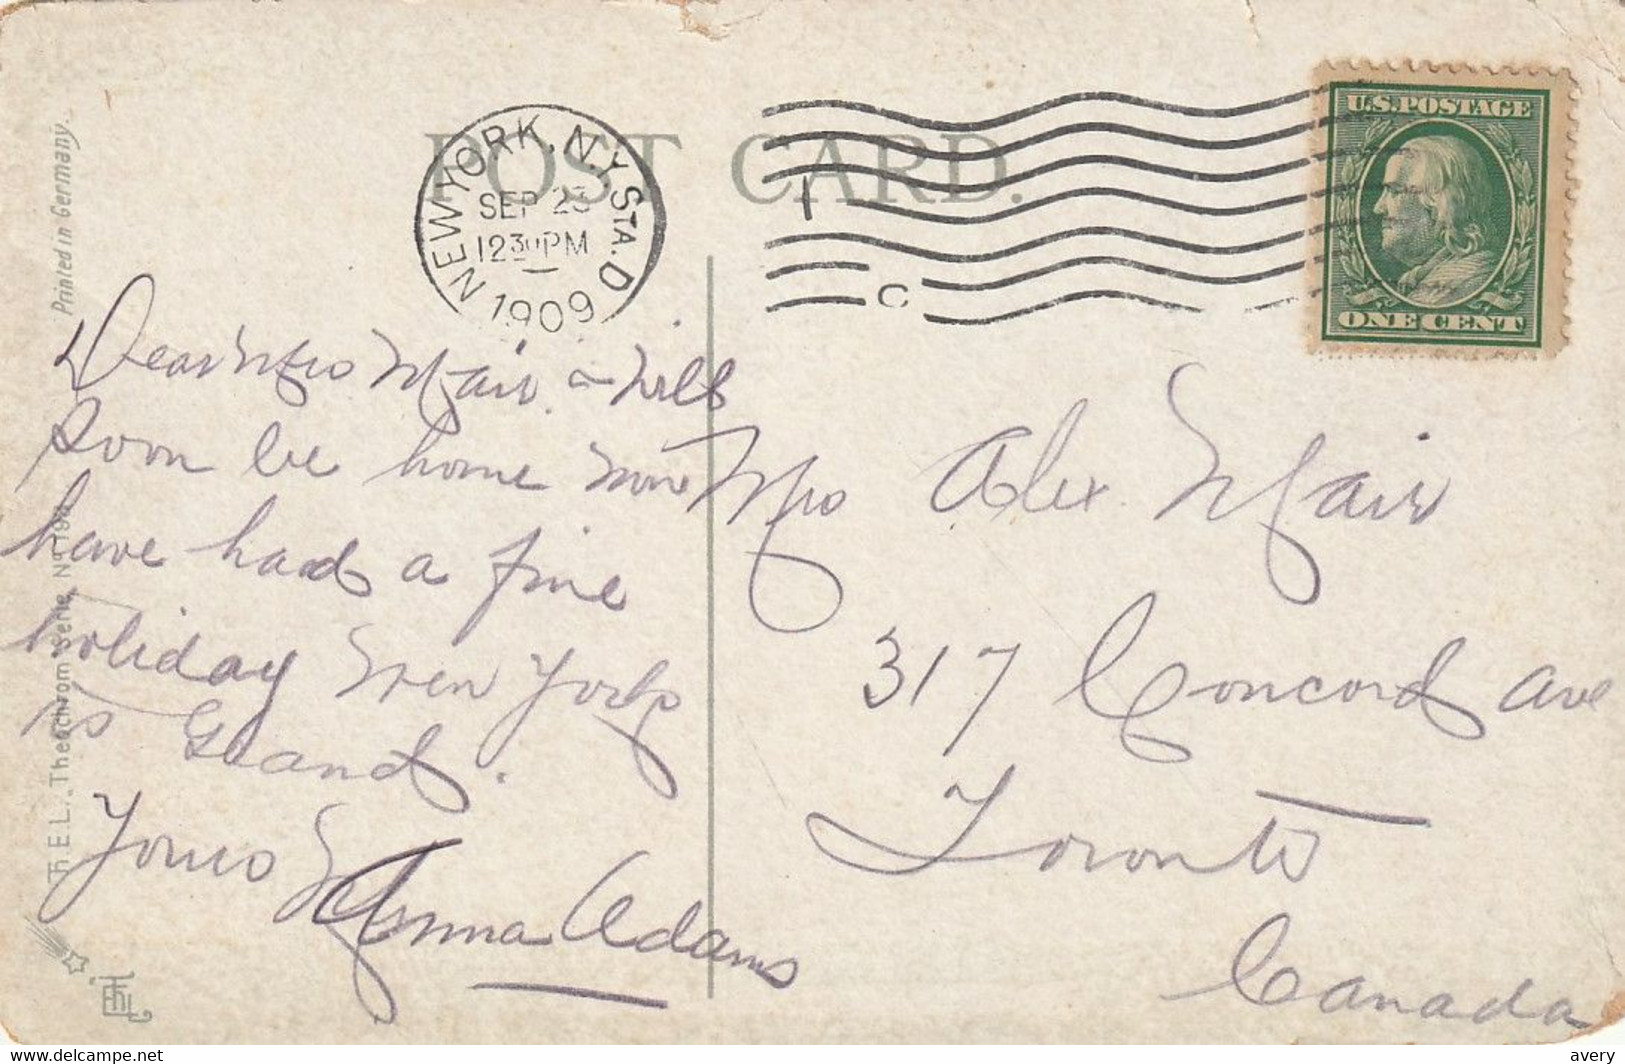 POST CARD.
NEW YORK, N.Y. STA. D
SEP 23
12 30 PM
1909
1
C
U.S. POSTAGE
ONE CENT
Printed in Germany.
Th. E. L. „Theochrom" Serie, No 1194
Dear Mrs Mair. will
soon be home now
have had a fine
holiday New York
is Grand.
Yours
Anna Adams
Mrs Alex Mair
317 Concord ave
Toronto
Canada
Uploaded to delcampe.net by
avery